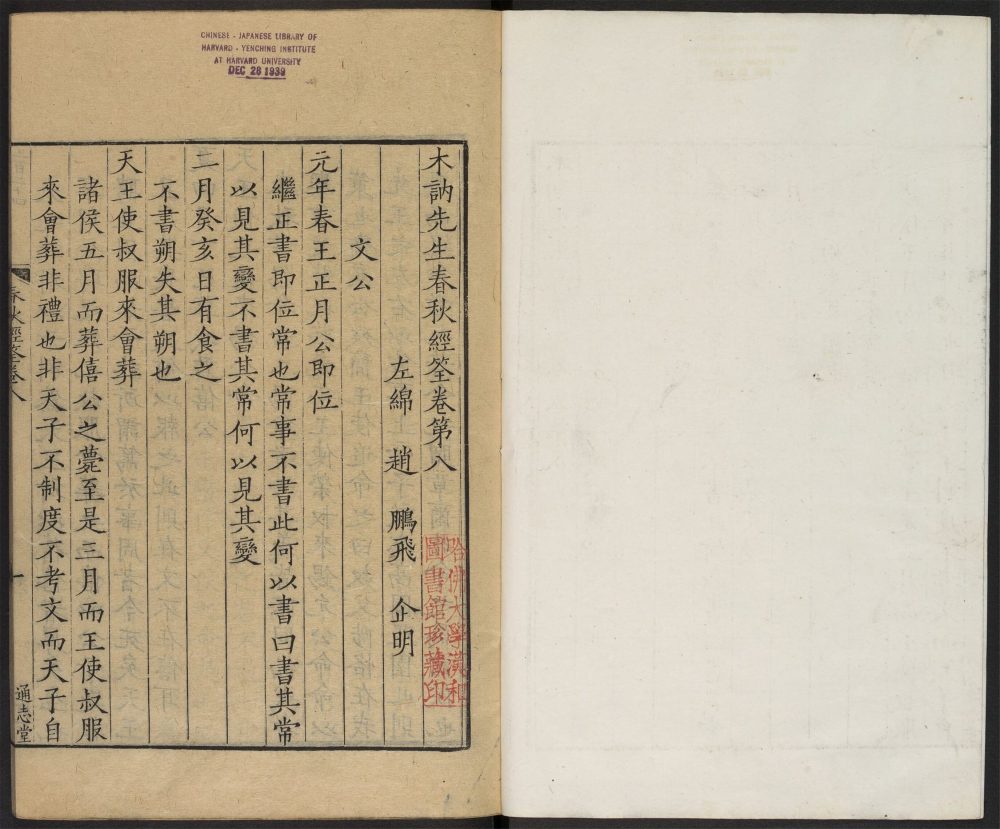 CHINESE - JAPANESE LIBRARY OF
HARVARD - YENCHING INSTITUTE
AT HARVARD UNIVERSITY
DEC 28 1939
木訥先生春秋經筌卷第八
左綿 趙 鵬飛 企明
文公
元年春王正月公即位
繼正書即位常也常事不書此何以書曰書其常
以見其變不書其常何以見其變
二月癸亥日有食之
不書朔失其朔也
天王使叔服來會葬
諸侯五月而葬僖公之薨至是三月而王使叔服
來會葬非禮也非天子不制度不考文而天子自
春秋經筌卷八
一
通志堂
哈佛大學漢和
圖書館珍藏印